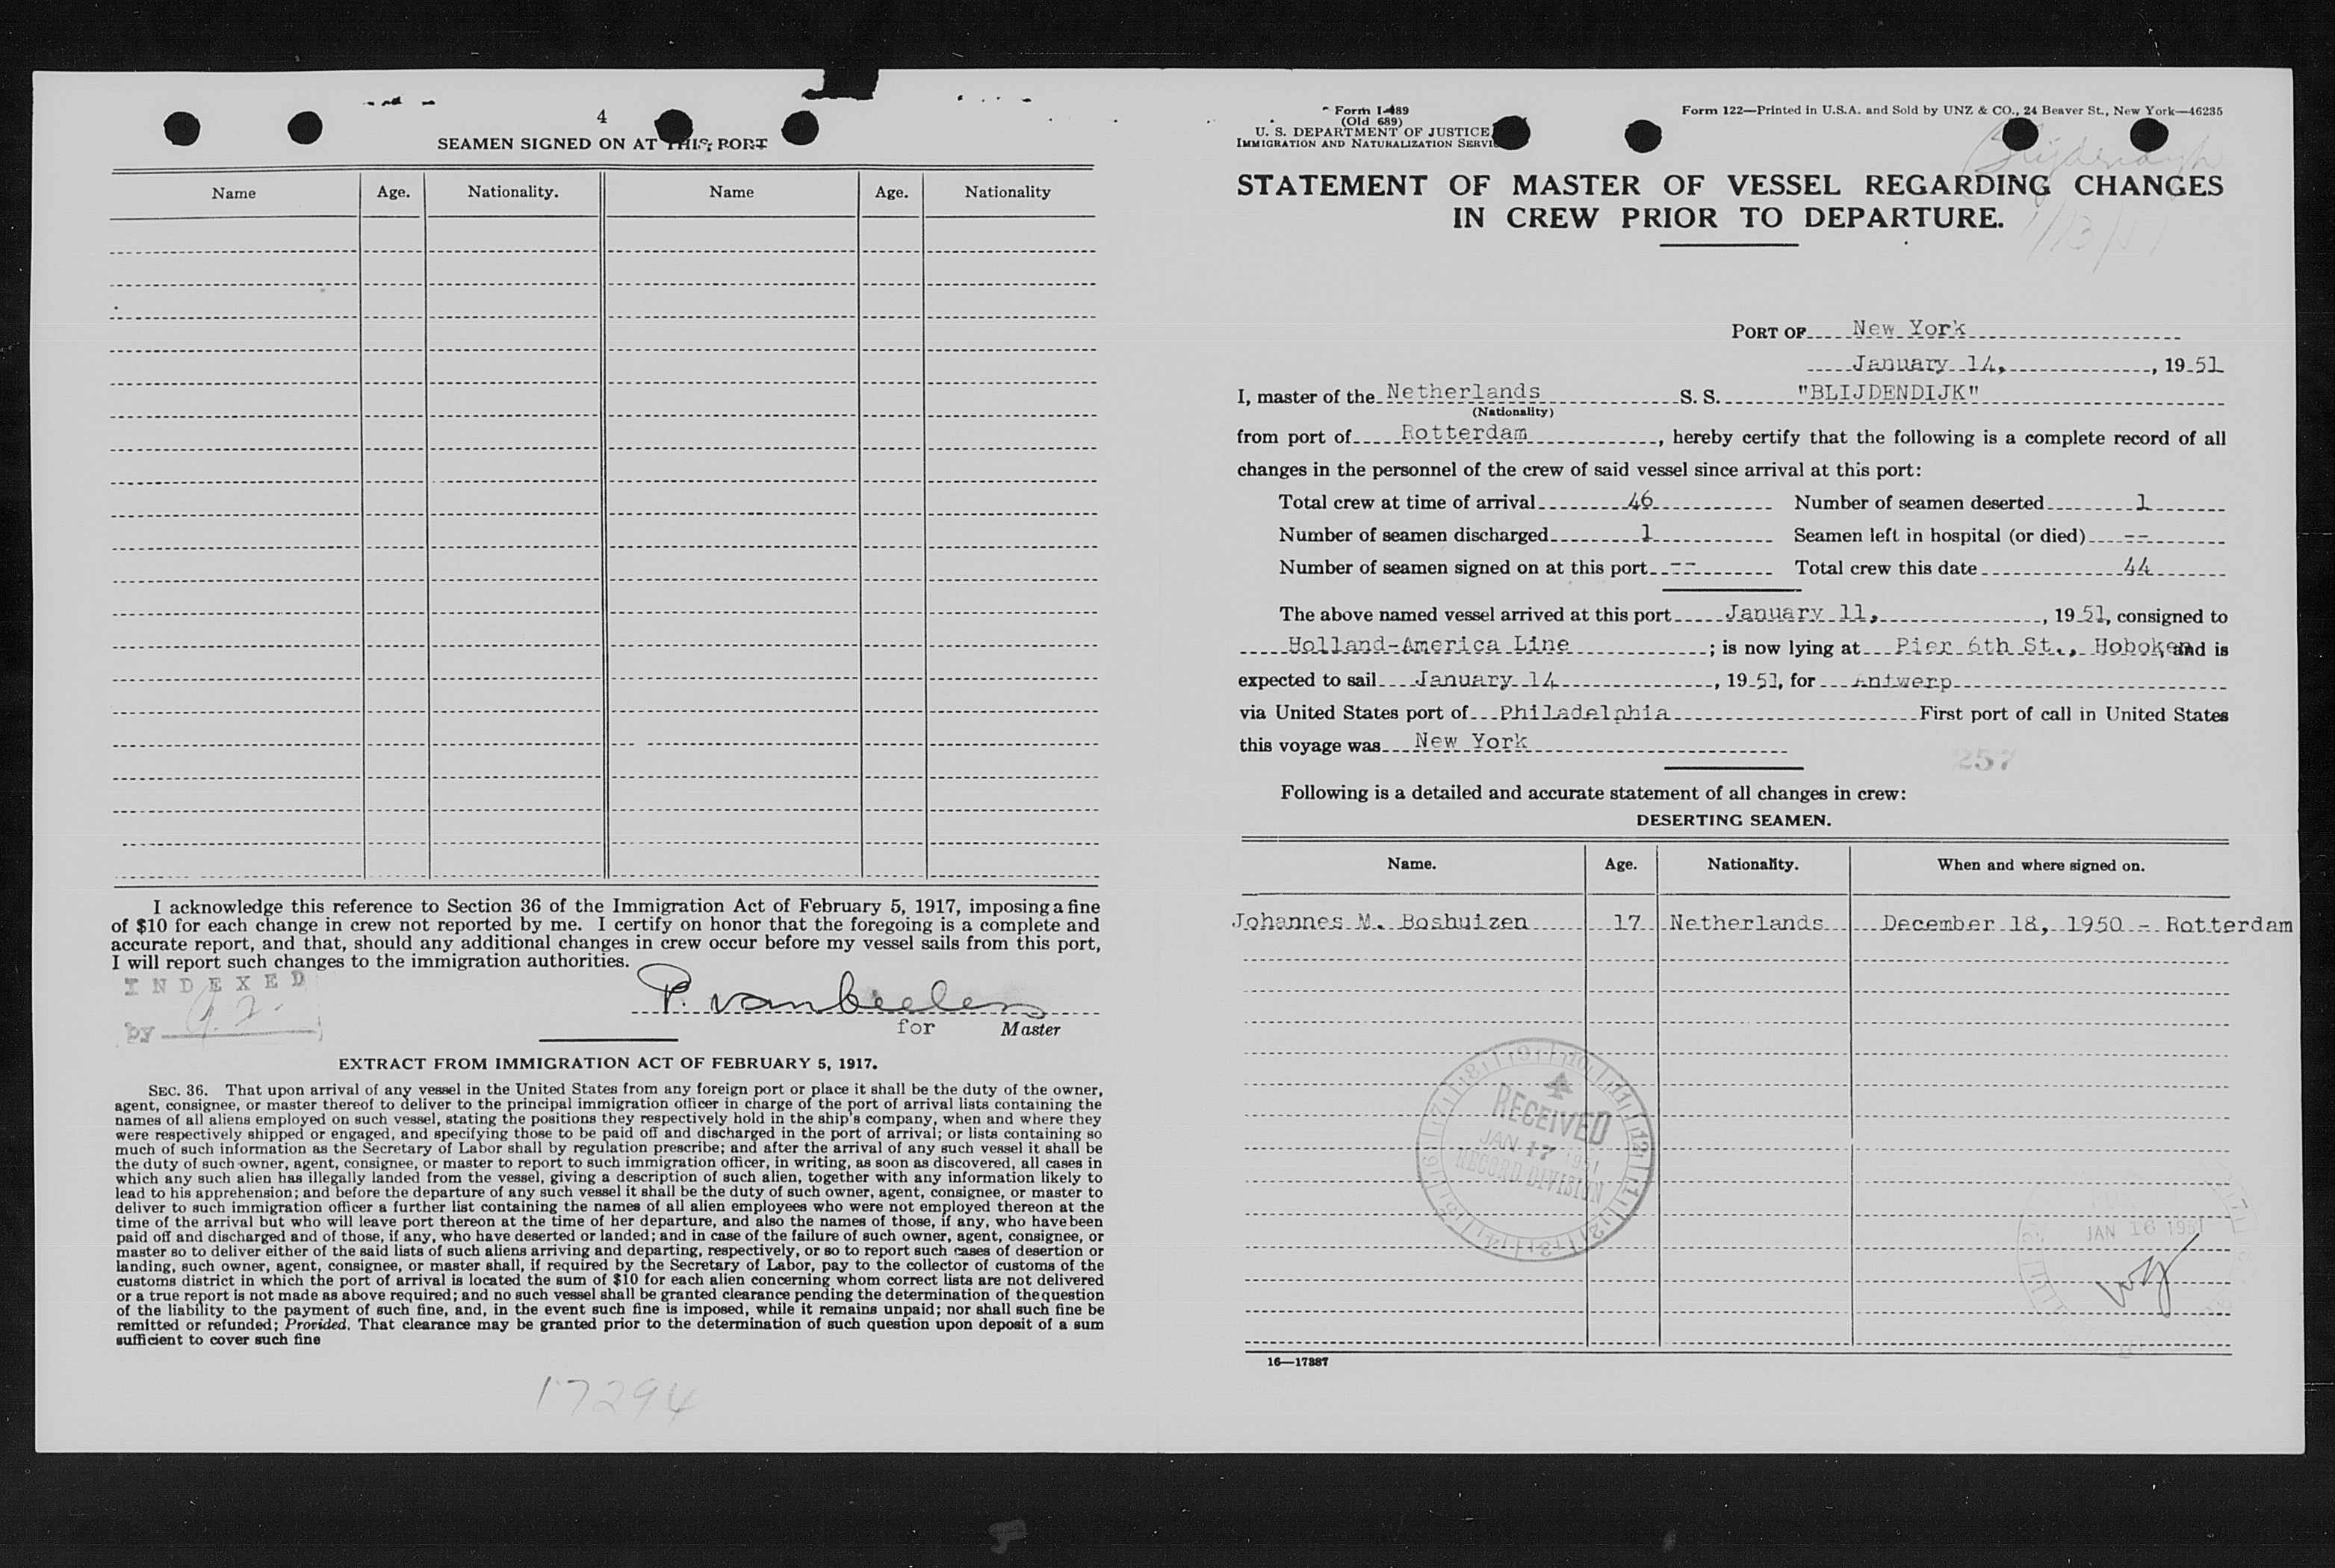 4
SEAMEN SIGNED ON AT THIS PORT
Name Age. Nationality. Name Age. Nationality
I acknowledge this reference to Section 36 of the Immigration Act of February 5, 1917, imposing a fine
of $10 for each change in crew not reported by me. I certify on honor that the foregoing is a complete and
accurate report, and that, should any additional changes in crew occur before my vessel sails from this port,
I will report such changes to the immigration authorities.
INDEXED
by
P. van
for Master
EXTRACT FROM IMMIGRATION ACT OF FEBRUARY 5, 1917.
SEC. 36. That upon arrival of any vessel in the United States from any foreign port or place it shall be the duty of the owner,
agent, consignee, or master thereof to deliver to the principal immigration officer in charge of the port of arrival lists containing the
names of all aliens employed on such vessel, stating the positions they respectively hold in the ship's company, when and where they
were respectively shipped or engaged, and specifying those to be paid off and discharged in the port of arrival; or lists containing so
much of such information as the Secretary of Labor shall by regulation prescribe; and after the arrival of any such vessel it shall be
the duty of such owner, agent, consignee, or master to report to such immigration officer, in writing, as soon as discovered, all cases in
which any such alien has illegally landed from the vessel, giving a description of such alien, together with any information likely to
lead to his apprehension; and before the departure of any such vessel it shall be the duty of such owner, agent, consignee, or master to
deliver to such immigration officer a further list containing the names of all alien employees who were not employed thereon at the
time of the arrival but who will leave port thereon at the time of her departure, and also the names of those, if any, who have been
paid off and discharged and of those, if any, who have deserted or landed; and in case of the failure of such owner, agent, consignee, or
master so to deliver either of the said lists of such aliens arriving and departing, respectively, or so to report such cases of desertion or
landing, such owner, agent, consignee, or master shall, if required by the Secretary of Labor, pay to the collector of customs of the
customs district in which the port of arrival is located the sum of $10 for each alien concerning whom correct lists are not delivered
or a true report is not made as above required; and no such vessel shall be granted clearance pending the determination of the question
of the liability to the payment of such fine, and, in the event such fine is imposed, while it remains unpaid; nor shall such fine be
remitted or refunded; Provided, That clearance may be granted prior to the determination of such question upon deposit of a sum
sufficient to cover such fine
17294
Form I-489
(Old 689)
U. S. DEPARTMENT OF JUSTICE
IMMIGRATION AND NATURALIZATION SERVI
Form 122—Printed in U.S.A. and Sold by UNZ & CO., 24 Beaver St., New York—46235
STATEMENT OF MASTER OF VESSEL REGARDING CHANGES
IN CREW PRIOR TO DEPARTURE.
PORT OF New York
January 14, , 1951
I, master of the Netherlands S. S. "BLIJDENDIJK"
(Nationality)
from port of Rotterdam , hereby certify that the following is a complete record of all
changes in the personnel of the crew of said vessel since arrival at this port:
Total crew at time of arrival 46 Number of seamen deserted 1
Number of seamen discharged 1 Seamen left in hospital (or died) --
Number of seamen signed on at this port -- Total crew this date 44
The above named vessel arrived at this port January 11, , 1951, consigned to
Holland-America Line ; is now lying at Pier 6th St., Hoboken, and is
expected to sail January 14 , 1951, for Antwerp
via United States port of Philadelphia First port of call in United States
this voyage was New York
257
Following is a detailed and accurate statement of all changes in crew:
DESERTING SEAMEN.
Name. Age. Nationality. When and where signed on.
Johannes M. Boshuizen 17 Netherlands December 18, 1950 - Rotterdam
RECEIVED
JAN 17 1951
RECORD DIVISION
JAN 16 195
16—17387